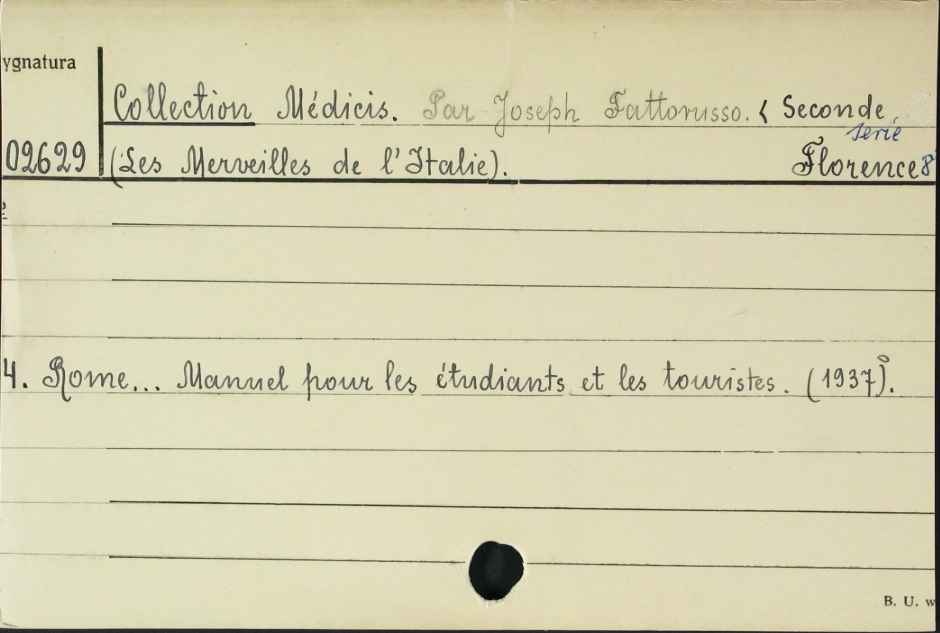 ygnatura
Collection Médicis. Par Joseph Fattorusso. < Seconde
serie
02629 (Les Merveilles de l'Italie). Florence 8
4. Rome... Manuel pour les étudiants et les touristes. (1937).
B. U. w